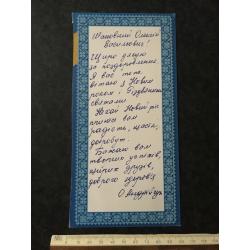 Шановний Олексію
Васильович!
Щиро дякую
за поздоровлення
Я вас теж
вітаю з Новим
роком і Різдвяними
святами
Нехай Новий рік
принесе вам
радість, щастя,
добробут.
Бажаю вам
творчих успіхів,
щирих друзів,
доброго здоров'я